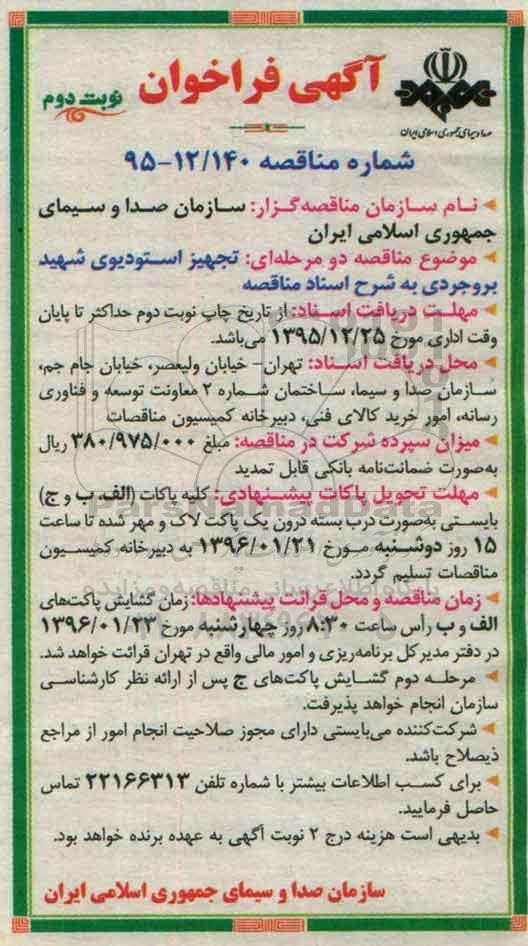 صدا و سیمای جمهوری اسلامی ایران
آگهی فراخوان
نوبت دوم
شماره مناقصه ۹۵-۱۲/۱۴۰
نام سازمان مناقصه‌گزار: سازمان صدا و سیمای
جمهوری اسلامی ایران
موضوع مناقصه دو مرحله‌ای: تجهیز استودیوی شهید
بروجردی به شرح اسناد مناقصه
مهلت دریافت اسناد: از تاریخ چاپ نوبت دوم حداکثر تا پایان
وقت اداری مورخ ۱۳۹۵/۱۲/۲۵ می‌باشد.
محل دریافت اسناد: تهران- خیابان ولیعصر، خیابان جام جم،
سازمان صدا و سیما، ساختمان شماره ۲ معاونت توسعه و فناوری
رسانه، امور خرید کالای فنی، دبیرخانه کمیسیون مناقصات
میزان سپرده شرکت در مناقصه: مبلغ ۳۸۰/۹۷۵/۰۰۰ ریال
به‌صورت ضمانت‌نامه بانکی قابل تمدید
مهلت تحویل پاکات پیشنهادی: کلیه پاکات (الف، ب و ج)
بایستی به‌صورت درب بسته درون یک پاکت لاک و مهر شده تا ساعت
۱۵ روز دوشنبه مورخ ۱۳۹۶/۰۱/۲۱ به دبیرخانه کمیسیون
مناقصات تسلیم گردد.
زمان مناقصه و محل قرائت پیشنهادها: زمان گشایش پاکت‌های
الف و ب رأس ساعت ۸:۳۰ روز چهارشنبه مورخ ۱۳۹۶/۰۱/۲۳
در دفتر مدیر کل برنامه‌ریزی و امور مالی واقع در تهران قرائت خواهد شد.
مرحله دوم گشایش پاکت‌های ج پس از ارائه نظر کارشناسی
سازمان انجام خواهد پذیرفت.
شرکت‌کننده می‌بایستی دارای مجوز صلاحیت انجام امور از مراجع
ذیصلاح باشد.
برای کسب اطلاعات بیشتر با شماره تلفن ۲۲۱۶۶۳۱۳ تماس
حاصل فرمایید.
بدیهی است هزینه درج ۲ نوبت آگهی به عهده برنده خواهد بود.
سازمان صدا و سیمای جمهوری اسلامی ایران
ParsNamadData